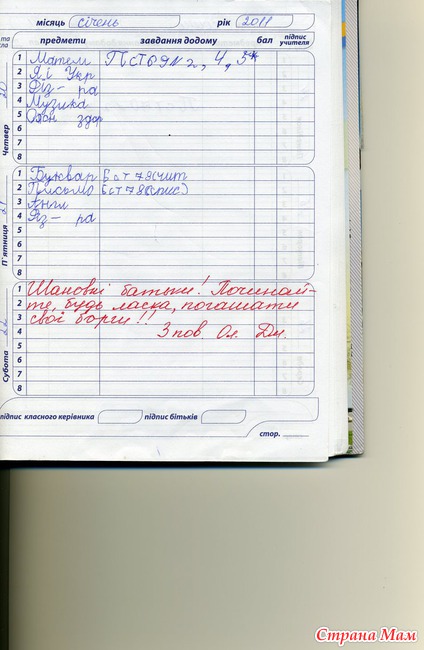 місяць січень рік 2011
предмети завдання додому бал підпис учителя
Четвер 20
1 Матем Пст69№2, 4, 3*
2 Я і Укр
3 Фіз-ра
4 Музика
5 Осн здор
6
7
8
П'ятниця 21
1 Буквар Б ст 78(чит
2 Письмо Бст78(спис)
3 Англ
4 Фіз-ра
5
6
7
8
Субота 22
1 Шановні батьки! Починай-
2 те, будь ласка, погашати
3 свої борги!!
4 З пов. Ол. Дм.
5
6
7
8
підпис класного керівника підпис бітьків
стор.
Страна Мам